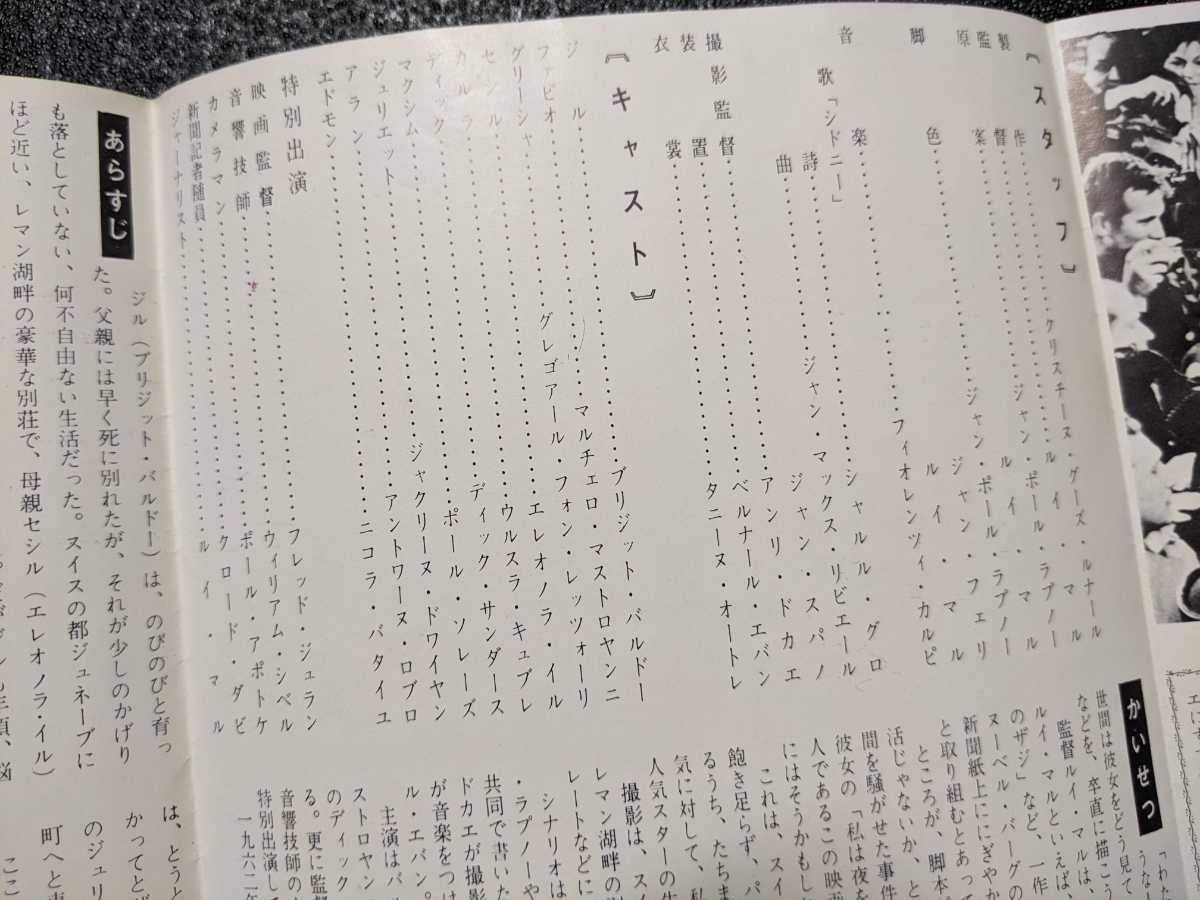 『スタッフ』
製作……クリスチーヌ・グーズ・ルナール
監督……ルイ・マル
原案……ジャン・ポール・ラプノー
ルイ・マル
脚色……ジャン・ポール・ラプノー
ジャン・フェリ
ルイ・マル
音楽……フィオレンツィ・カルピ
歌「シドニー」
詩……シャルル・グロ
ジャン・マックス・リビエール
曲……ジャン・スパノ
撮影監督……アンリ・ドカエ
装置……ベルナール・エバン
衣裳……タニーヌ・オートレ
『キャスト』
ジル……ブリジット・バルドー
ファビオ……マルチェロ・マストロヤンニ
グリーシャ……グレゴアール・フォン・レッツォーリ
セシル……エレオノラ・イル
カルラ……ウルスラ・キュブレ
ディック……ディック・サンダース
マクシム……ポール・ソレーズ
ジュリエット……ジャクリーヌ・ドワイヤン
アラン……アントワーヌ・ロブロ
エドモン……ニコラ・バタイユ
特別出演
映画監督……フレッド・ジュラン
音響技師……ウィリアム・シベル
カメラマン……ポール・アポトケ
新聞記者随員……クロード・ダビ
ジャーナリスト……ルイ・マル
かいせつ
世間は彼女をどう見て
などを、卒直に描こう
監督ルイ・マルは、
ルイ・マルといえば、
のザジ」など、一作
ヌーベル・バーグの
新聞紙上ににぎやか
と取り組むとあって
ところが、脚本が
活じゃないか、と
間を騒がせた事件
彼女の「私は夜を
人であるこの映画
にはそうかもし
これは、スイ
飽き足らず、パ
るうち、たちま
気に対して、私
人気スターの生
撮影は、ス
レマン湖畔の
レートなどに
シナリオは
・ラプノーや
共同で書いた
ドカエが撮影
が音楽をつけ
ル・エバン。
主演はバ
ストロヤン
のディック
る。更に監督
音響技師の
特別出演して
一九六二年
あらすじ
ジル（ブリジット・バルドー）は、のびのびと育っ
た。父親には早く死に別れたが、それが少しのかげり
も落としていない、何不自由ない生活だった。スイスの都ジュネーブに
ほど近い、レマン湖畔の豪華な別荘で、母親セシル（エレオノラ・イル）
は、とうと
かってとび
のジュリ
町へと
ここ